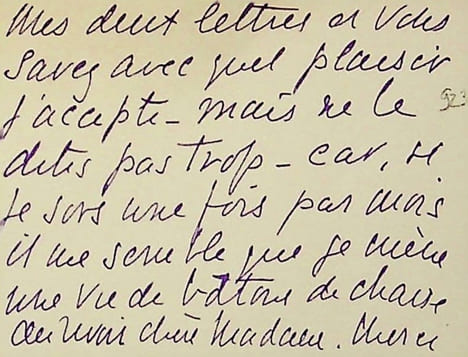 mes deux lettres et vous
savez avec quel plaisir
j'accepte – mais ne le
dites pas trop – car, si
je sors une fois par mois
il me semble que je mène
une vie de bâtons de chaise
au revoir chère Madame. Merci